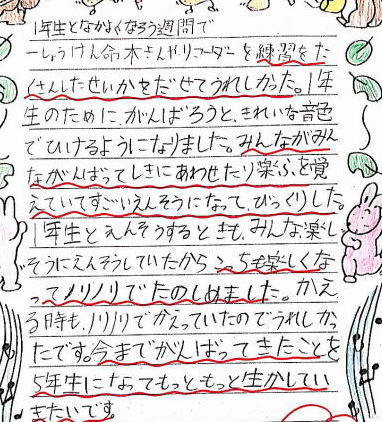 1年生となかよくなろう週間で
一しょうけん命木きんやリコーダーを練習をた
くさんしたせいかをだせてうれしかった。1年
生のために、がんばろうと、きれいな音色
でひけるようになりました。みんながみん
ながんばってしきにあわせたり楽ふを覚
えていてすごいえんそうになって、びっくりした。
1年生とえんそうするときも、みんな楽し
そうにえんそうしていたからこっちも楽しくな
ってノリノリでたのしめました。かえ
る時も、ノリノリでかえっていたのでうれしかっ
たです。今までがんばってきたことを
5年生になってもっともっと生かしてい
きたいです。